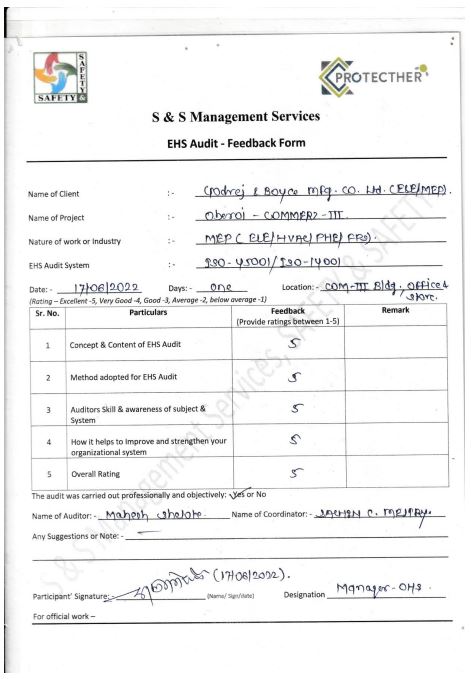 SAFETY
SAFETY &
PROTECTHER
S & S Management Services
EHS Audit - Feedback Form
Name of Client :- Godrej & Boyce Mfg. Co. Ltd. (ELE/MEP).
Name of Project :- Oberoi - COMMERZ-III.
Nature of work or Industry :- MEP (ELE/HVAC/PHE/FPS).
EHS Audit System :- ISO-45001/ISO-14001
Date: - 17/06/2022 Days: - one Location: - COM-III Bldg, Office &
store.
(Rating – Excellent -5, Very Good -4, Good -3, Average -2, below average -1)
Sr. No. Particulars Feedback Remark
(Provide ratings between 1-5)
1 Concept & Content of EHS Audit 5
2 Method adopted for EHS Audit 5
3 Auditors Skill & awareness of subject & 5
System
4 How it helps to Improve and strengthen your 5
organizational system
5 Overall Rating 5
The audit was carried out professionally and objectively: Yes or No
Name of Auditor: - Mahesh Shelake. Name of Coordinator: - SACHIN C. MESTRY.
Any Suggestions or Note: - —
(17/06/2022).
Participant' Signature:- (Name/ Sign/date) Designation Manager-OHS.
For official work –
S & S Management Services, SAFETY & SAFETY